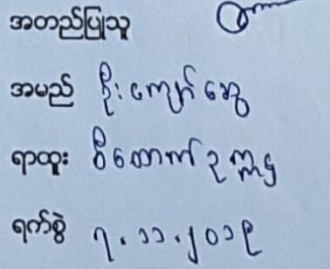 အတည်ပြုသူ
အမည် ဦးကျော်ဆွေ
ရာထူး စီထောက်ဥက္ကဋ္ဌ
ရက်စွဲ ၇.၁၁.၂၀၁၉